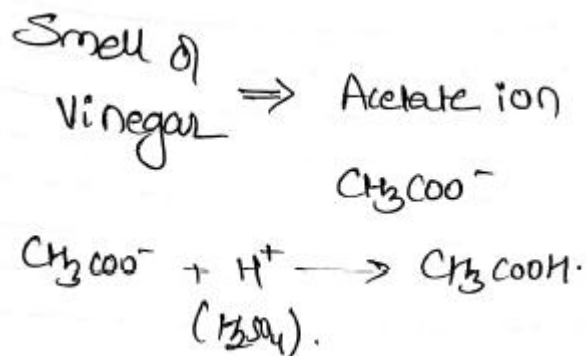 Smell of
Vinegar ⇒ Acetate ion
CH₃COO⁻
CH₃COO⁻ + H⁺ ⟶ CH₃COOH.
(H₂SO₄).